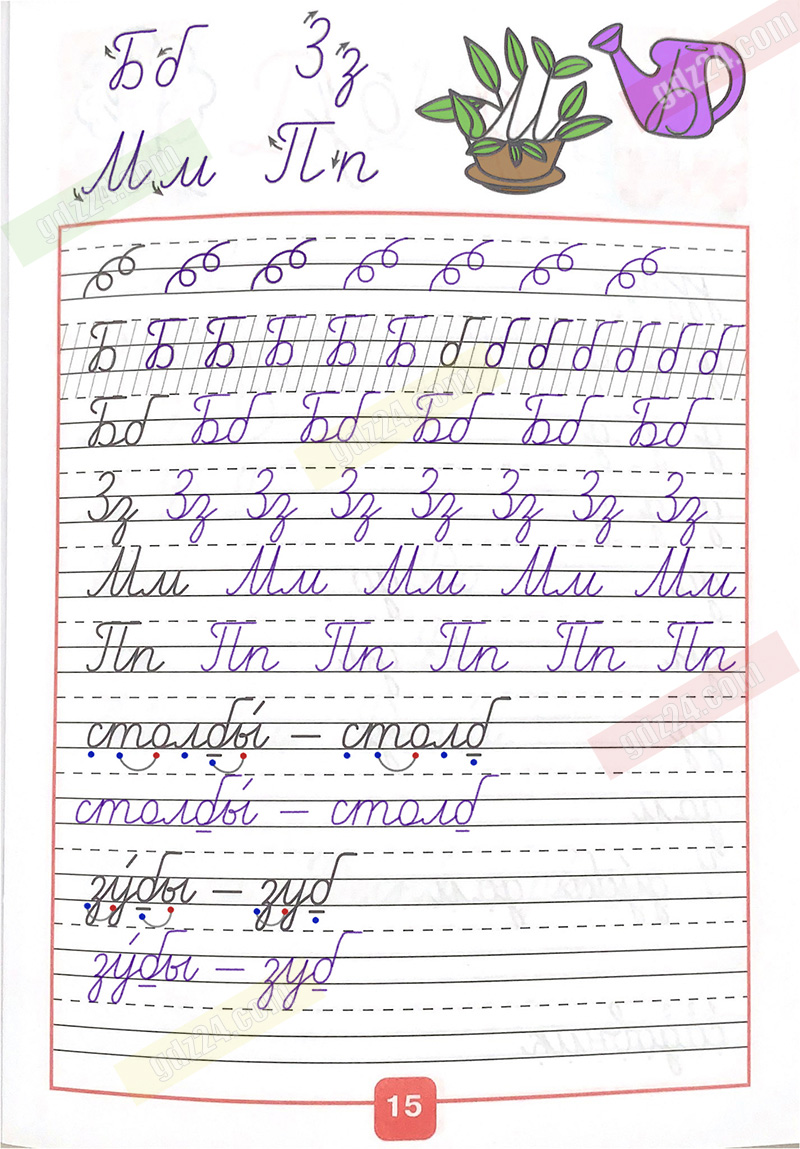 Бб Зз
gdz24.com
Мм Пп
gdz24.com
Б Б Б Б Б Б б б б б б б б
Бб Бб Бб Бб Бб Бб
gdz24.com
Зз Зз Зз Зз Зз Зз Зз Зз
Мм Мм Мм Мм Мм
Пп Пп Пп Пп Пп Пп
столбы́ – столб
gdz24.com
столбы́ – столб
зу́бы – зуб
зу́бы – зуб
gdz24.com
15